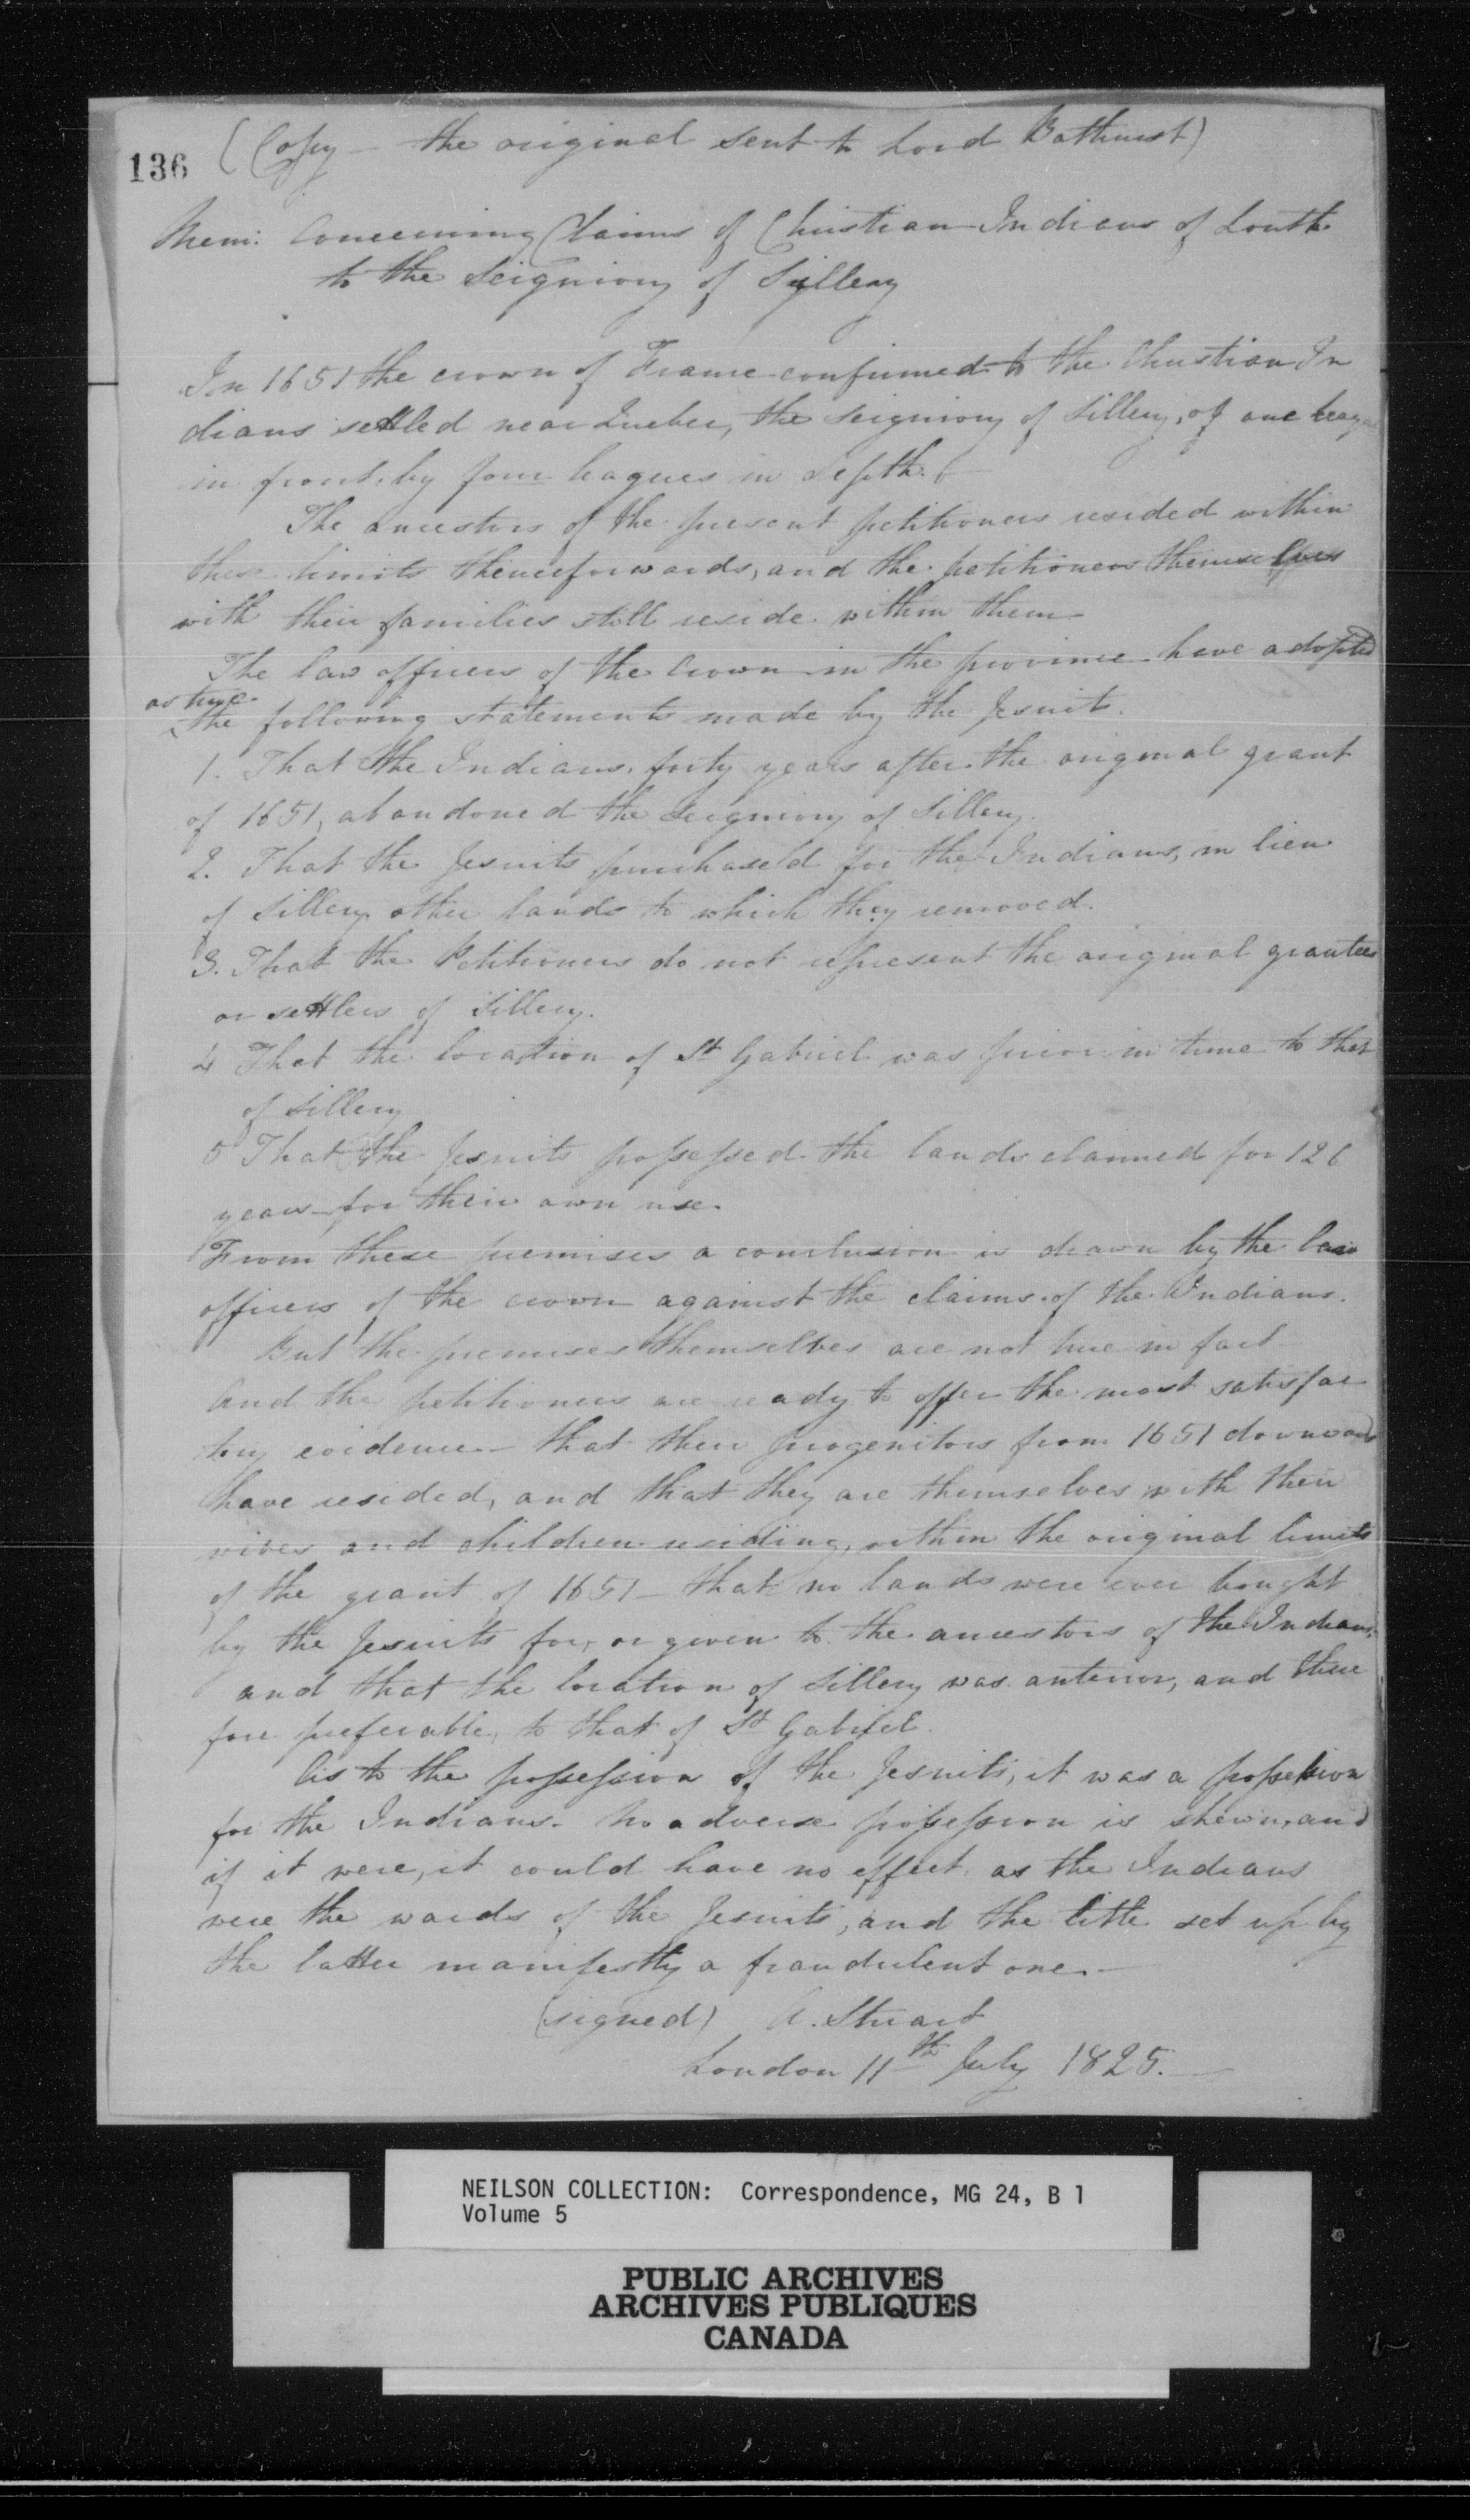 136
(Copy – the original sent to Lord Bathurst)
Mem: Concerning Claims of Christian Indians of
to the Seigniory of Syllery
In 1651 the crown of France confirmed to the Christian In
dians settled near Quebec, the Seigniory of Sillery, of one league
in front, by four leagues in depth.
The ancestors of the present petitioners resided within
these limits thenceforwards, and the petitioners themselves
with their families still reside within them
The law officers of the Crown in the province have adopted
as true
the following statements made by the Jesuits.
1. That the Indians, forty years after the original grant
of 1651, abandoned the Seigniory of Sillery.
2. That the Jesuits purchased for the Indians, in lieu
of Sillery other lands to which they removed.
3. That the Petitioners do not represent the original grantees
or settlers of Sillery.
4 That the location of St Gabriel was prior in time to that
of Sillery
5 That the Jesuits possessed the lands claimed for 126
years for their own use.
From these premises a conclusion is drawn by the law
officers of the crown against the claims of the Indians.
But the premises themselves are not true in fact
And the petitioners are ready to offer the most satisfac
tory evidence – that their progenitors from 1651 downwards
have resided, and that they are themselves with their
wives and children residing, within the original limits
of the grant of 1651 – that no lands were ever bought
by the Jesuits for, or given to the ancestors of the Indians,
and that the location of Sillery was anterior, and there
fore preferable, to that of St Gabriel.
As to the possession of the Jesuits, it was a possession
for the Indians. No adverse possession is shewn, and
if it were, it could have no effect as the Indians
were the wards of the Jesuits, and the title set up by
the latter manifestly a fraudulent one. –
(signed) A. Stuart
London 11th July 1825. –
NEILSON COLLECTION: Correspondence, MG 24, B 1
Volume 5
PUBLIC ARCHIVES
ARCHIVES PUBLIQUES
CANADA